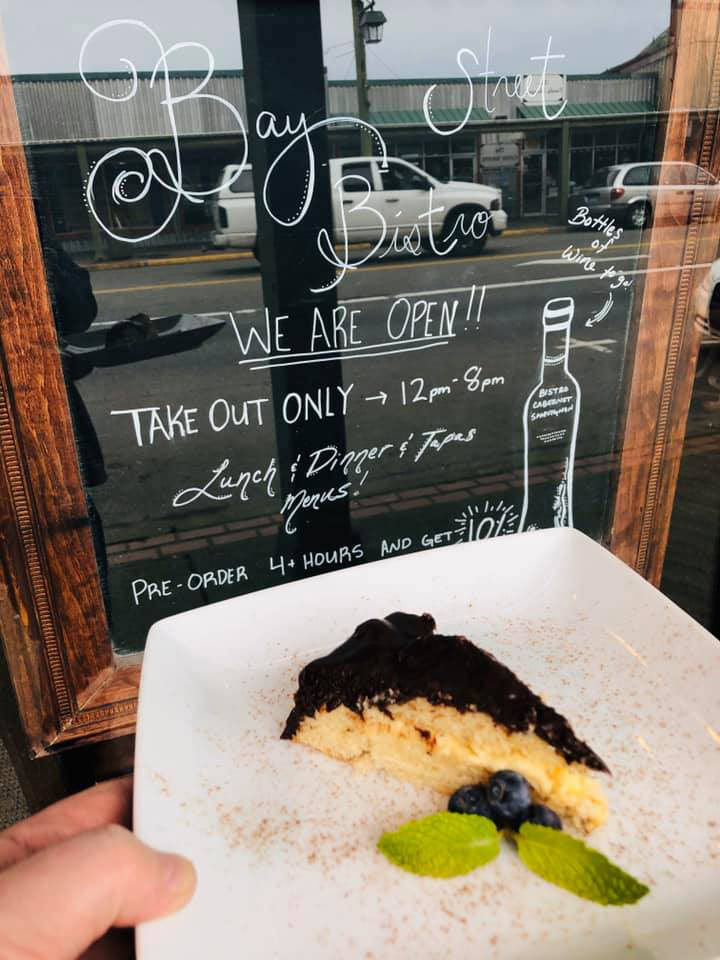 Bay Street
Bistro
Bottles
of
Wine to go!
WE ARE OPEN!!
TAKE OUT ONLY → 12pm-8pm
BISTRO
CABERNET
SAUVIGNON
Lunch & Dinner & Tapas
Menus!
PRE-ORDER 4+ HOURS AND GET 10%